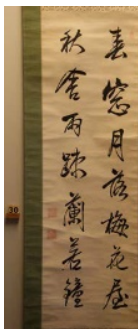 春窓月落梅花屋
秋舎雨踈蘭若鐘
30